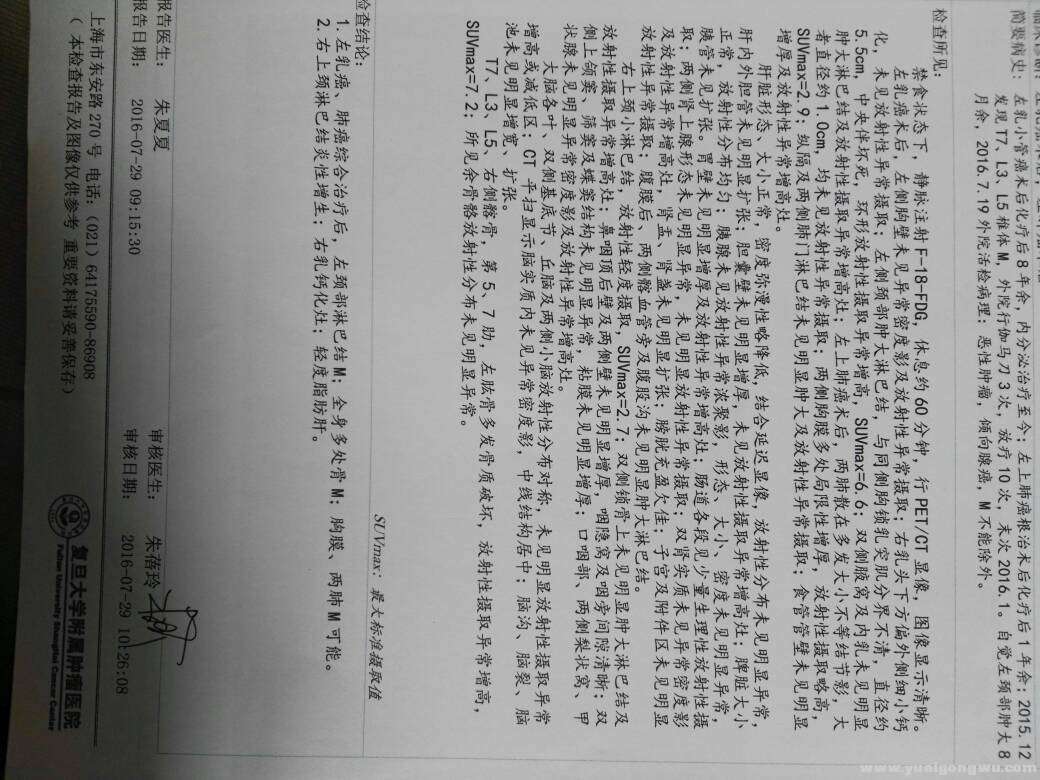 简要病史： 左乳小管癌术后化疗后8年余，内分泌治疗至今；左上肺癌根治术后化疗后1年余；2015.12
发现T7、L3、L5椎体M，外院行伽马刀3次，放疗10次，末次2016.1。自觉左颈部肿大8
月余，2016.7.19外院活检病理：恶性肿瘤，倾向腺癌，M不能除外。
检查所见：
禁食状态下，静脉注射F-18-FDG，休息约60分钟，行PET/CT显像，图像显示清晰。
左乳癌术后，左侧胸壁未见异常密度影及放射性异常摄取；右乳头下方偏外侧细小钙
化，未见放射性异常摄取。左侧颈部肿大淋巴结，与同侧胸锁乳突肌分界不清，直径约
5.5cm，中央伴坏死，环形放射性摄取异常增高，SUVmax=6.6；双侧腋窝及内乳未见明显
肿大淋巴结及放射性摄取异常增高灶；左上肺癌术后，两肺散在多发大小不等结节影，大
者直径约1.0cm，均未见放射性异常摄取；两侧胸膜多处局限性增厚，放射性摄取略高，
SUVmax=2.9；纵隔及两侧肺门淋巴结未见明显肿大及放射性异常摄取；食管管壁未见明显
增厚及放射性异常增高灶。
肝脏形态、大小正常，密度弥漫性略降低，结合延迟显像，放射性分布未见明显异常，
肝内外胆管未见明显扩张；胆囊壁未见明显增厚，未见放射性摄取异常增高灶；脾脏大小
正常，放射性分布均匀；胰腺未见放射性异常浓聚影，形态、大小、密度未见明显异常，
胰管未见扩张。胃壁未见明显增厚及放射性异常增高灶；肠道各段见少量生理性放射性摄
取；两侧肾上腺形态未见明显异常，未见明显放射性异常摄取，双肾实质未见异常密度影
及放射性异常增高灶，肾盂、肾盏未见明显扩张；膀胱充盈欠佳；子宫及附件区未见明显
放射性异常摄取；腹膜后、两侧髂血管旁及腹股沟未见明显肿大淋巴结。
右上颈小淋巴结，放射性轻度摄取，SUVmax=2.7；双侧锁骨上未见明显肿大淋巴结及
放射性摄取异常增高灶；鼻咽顶后壁及两侧壁未见明显增厚，咽隐窝及咽旁间隙清晰；双
侧上颌窦、筛窦及蝶窦结构未见明显异常，粘膜未见明显增厚；口咽部、两侧梨状窝、甲
状腺未见明显异常密度影及放射性异常增高灶。
大脑各叶、双侧基底节、丘脑及两侧小脑放射性分布对称，未见明显放射性摄取异常
增高或减低区；CT平扫显示脑实质内未见异常密度影，中线结构居中；脑沟、脑裂、脑
池未见明显增宽、扩张。
T7、L3、L5、右侧髂骨，第5、7肋，左肱骨多发骨质破坏，放射性摄取异常增高，
SUVmax=7.2；所见余骨骼放射性分布未见明显异常。
SUVmax：最大标准摄取值
检查结论：
1. 左乳癌、肺癌综合治疗后，左颈部淋巴结M；全身多处骨M；胸膜、两肺M可能。
2. 右上颈淋巴结炎性增生；右乳钙化灶；轻度脂肪肝。
报告医生： 朱夏夏 审核医生： 朱蓓玲
报告日期： 2016-07-29 09:15:30 审核日期： 2016-07-29 10:26:08
上海市东安路270号 电话：(021) 64175590-86908
（ 本检查报告及图像仅供参考 重要资料请妥善保存）
复旦大学附属肿瘤医院
Fudan University Shanghai Cancer Center
www.yueigongwu.com